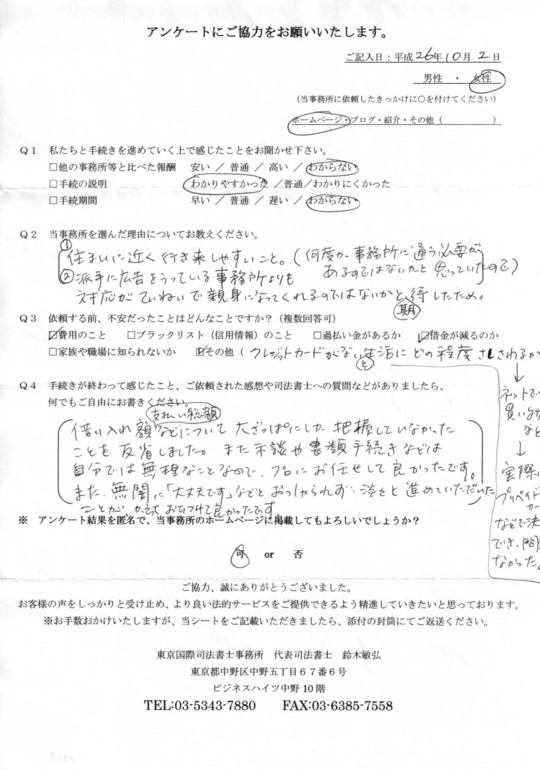 アンケートにご協力をお願いいたします。
ご記入日:平成26年10月2日
男性 ・ 女性
(当事務所に依頼したきっかけに○を付けてください)
ホームページ・ブログ・紹介・その他( )
Q1 私たちと手続きを進めていく上で感じたことをお聞かせ下さい。
□他の事務所等と比べた報酬 安い / 普通 / 高い / わからない
□手続の説明 わかりやすかった / 普通 / わかりにくかった
□手続期間 早い / 普通 / 遅い / わからない
Q2 当事務所を選んだ理由についてお教えください。
① 住まいに近く行き来しやすいこと。(何度か事務所に通う必要が
あるのではないかと思っていたので)
② 派手に広告をうっている事務所よりも
対応がていねいで親身になってくれるのではないかと期待したため。
Q3 依頼する前、不安だったことはどんなことですか?(複数回答可)
☑費用のこと □ブラックリスト(信用情報)のこと □過払い金があるか ☑借金が減るのか
□家族や職場に知られないか ☑その他(クレジットカードがない生活にどの程度
ネットで
買い
など
実際に
プリペイド
カー
などで決
でき、
なかった。
Q4 手続きが終わって感じたこと、ご依頼された感想や司法書士への質問などがありましたら、
何でもご自由にお書きください。
支払い総額
借り入れ額などについて大ざっぱにしか把握していなかった
ことを反省しました。また示談や書類手続きなどは
自分では無理なことなので、プロにお任せして良かったです。
また、無闇に「大丈夫です」などとおっしゃられず、淡々と進めていただいた
ことが、かえっておちつけて良かったです
※ アンケート結果を匿名で、当事務所のホームページに掲載してもよろしいでしょうか?
可 or 否
ご協力、誠にありがとうございました。
お客様の声をしっかりと受け止め、より良い法的サービスをご提供できるよう精進していきたいと思っております。
※お手数おかけいたしますが、当シートをご記載いただきましたら、添付の封筒にてご返送ください。
東京国際司法書士事務所 代表司法書士 鈴木敏弘
東京都中野区中野五丁目67番6号
ビジネスハイツ中野10階
TEL:03-5343-7880 FAX:03-6385-7558